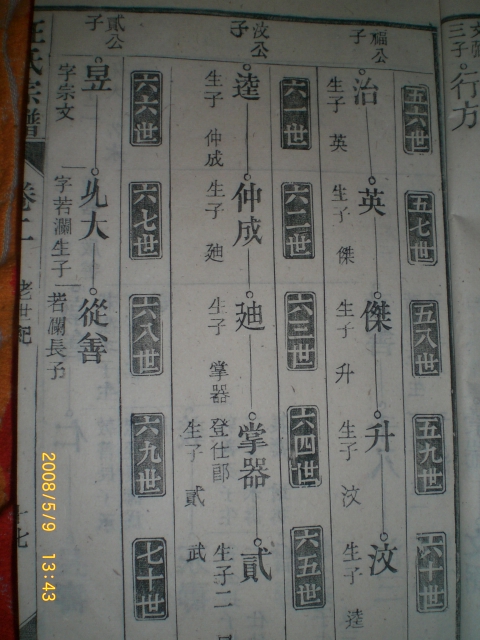 三子
行方
五六世
五七世
五八世
五九世
六十世
福公
子
治
生子 英
英
生子 傑
傑
生子 升
升
生子 汶
汶
生子 逵
六一世
六二世
六三世
六四世
六五世
汶公
子
逵
生子 仲成
仲成
生子 廸
廸
生子 掌器
掌器
登仕郎
生子 貳 武
貳
生子二
六六世
六七世
六八世
六九世
七十世
貳公
子
昱
字宗文
大
字若瀾生子一
從善
若瀾長子
汪氏宗譜
卷二
老世記
十七
2008/5/9 13:43